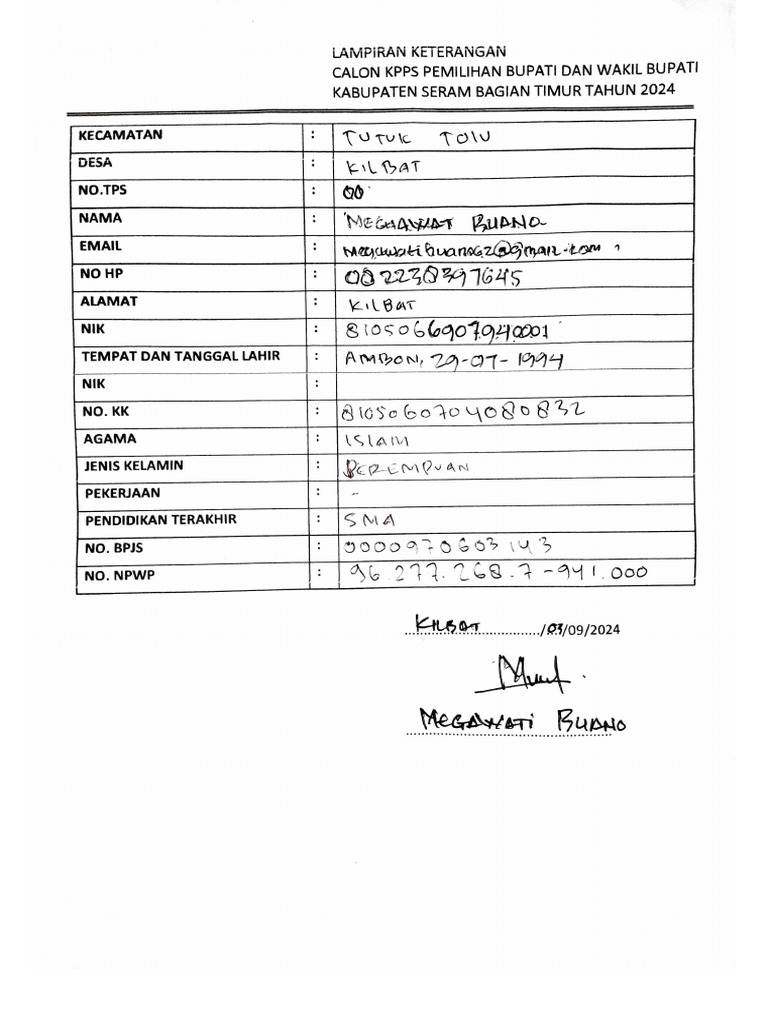 LAMPIRAN KETERANGAN
CALON KPPS PEMILIHAN BUPATI DAN WAKIL BUPATI
KABUPATEN SERAM BAGIAN TIMUR TAHUN 2024
KECAMATAN : TUTUK TOLU
DESA : KILBAT
NO.TPS : 00
NAMA : MEGHAWAT BUANO
EMAIL :
NO HP : 082238397645
ALAMAT : KILBAT
NIK : 8105066907940001
TEMPAT DAN TANGGAL LAHIR : AMBON, 29-07-1994
NIK :
NO. KK : 8105060704080832
AGAMA : ISLAM
JENIS KELAMIN : PEREMPUAN
PEKERJAAN : -
PENDIDIKAN TERAKHIR : SMA
NO. BPJS : 0000970603143
NO. NPWP : 96.277.268.7-941.000
KILBAT/03/09/2024
MEGAWATI BUANO